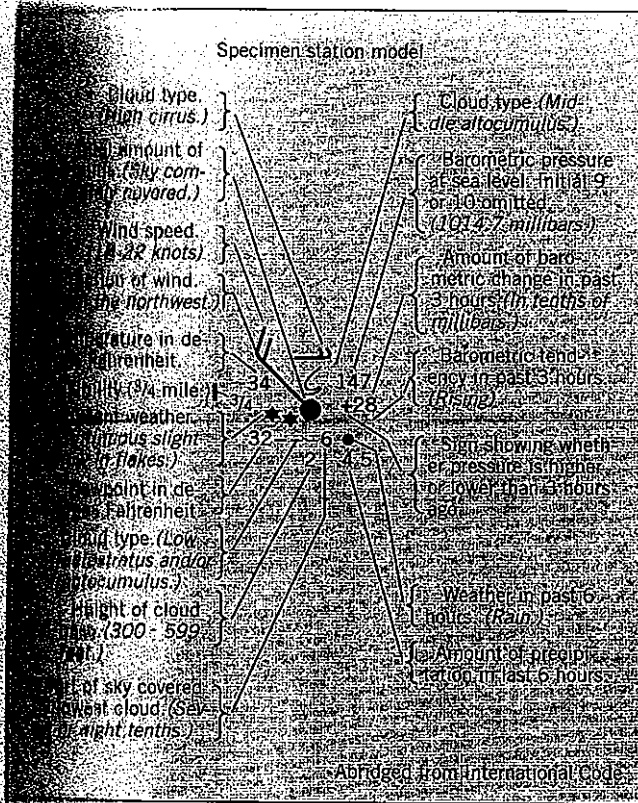 Specimen station model
Cloud type.
(High cirrus.)
amount of
(Sky com-
covered.)
Wind speed.
22 knots)
of wind.
the northwest.)
in de-
Fahrenheit.
(3/4 mile.)
weather.
slight
in flakes.)
in de-
Fahrenheit.
Cloud type (Low
and/or
Height of cloud
(300 - 599
feet.)
of sky covered
lowest cloud (Sev-
eight tenths.)
34
147
3/4
+28
32
6
2
4.5
Cloud type (Mid-
dle altocumulus.)
Barometric pressure
at sea level. Initial 9
or 10 omitted.
(1014.7 millibars.)
Amount of baro-
metric change in past
3 hours (In tenths of
millibars.)
Barometric tend-
ency in past 3 hours.
(Rising)
Sign showing wheth-
er pressure is higher
or lower than 3 hours
ago.
Weather in past 6
hours. (Rain.)
Amount of precipi-
tation in last 6 hours.
Abridged from International Code